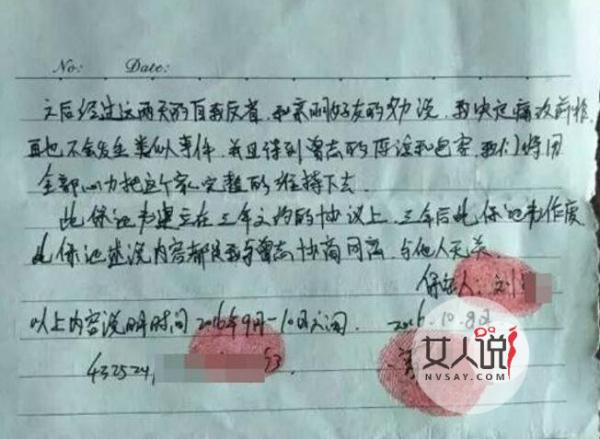 No:   Date:
之后经过这两天的自我反省,和亲朋好友的劝说,我决定痛改前非
再也不会发生类似事件,并且得到曾志的原谅和包容,我们将用
全部心力把这个家完整的维持下去.
此保证书建立在三年之约的协议上,三年后此保证书作废
此保证述说内容都是我与曾志协商同意,与他人无关.
保证人:刘
以上内容说明时间2016年9月-10月之间.
2016.10.8日
432524,
93.
女人说
NVSAY.COM